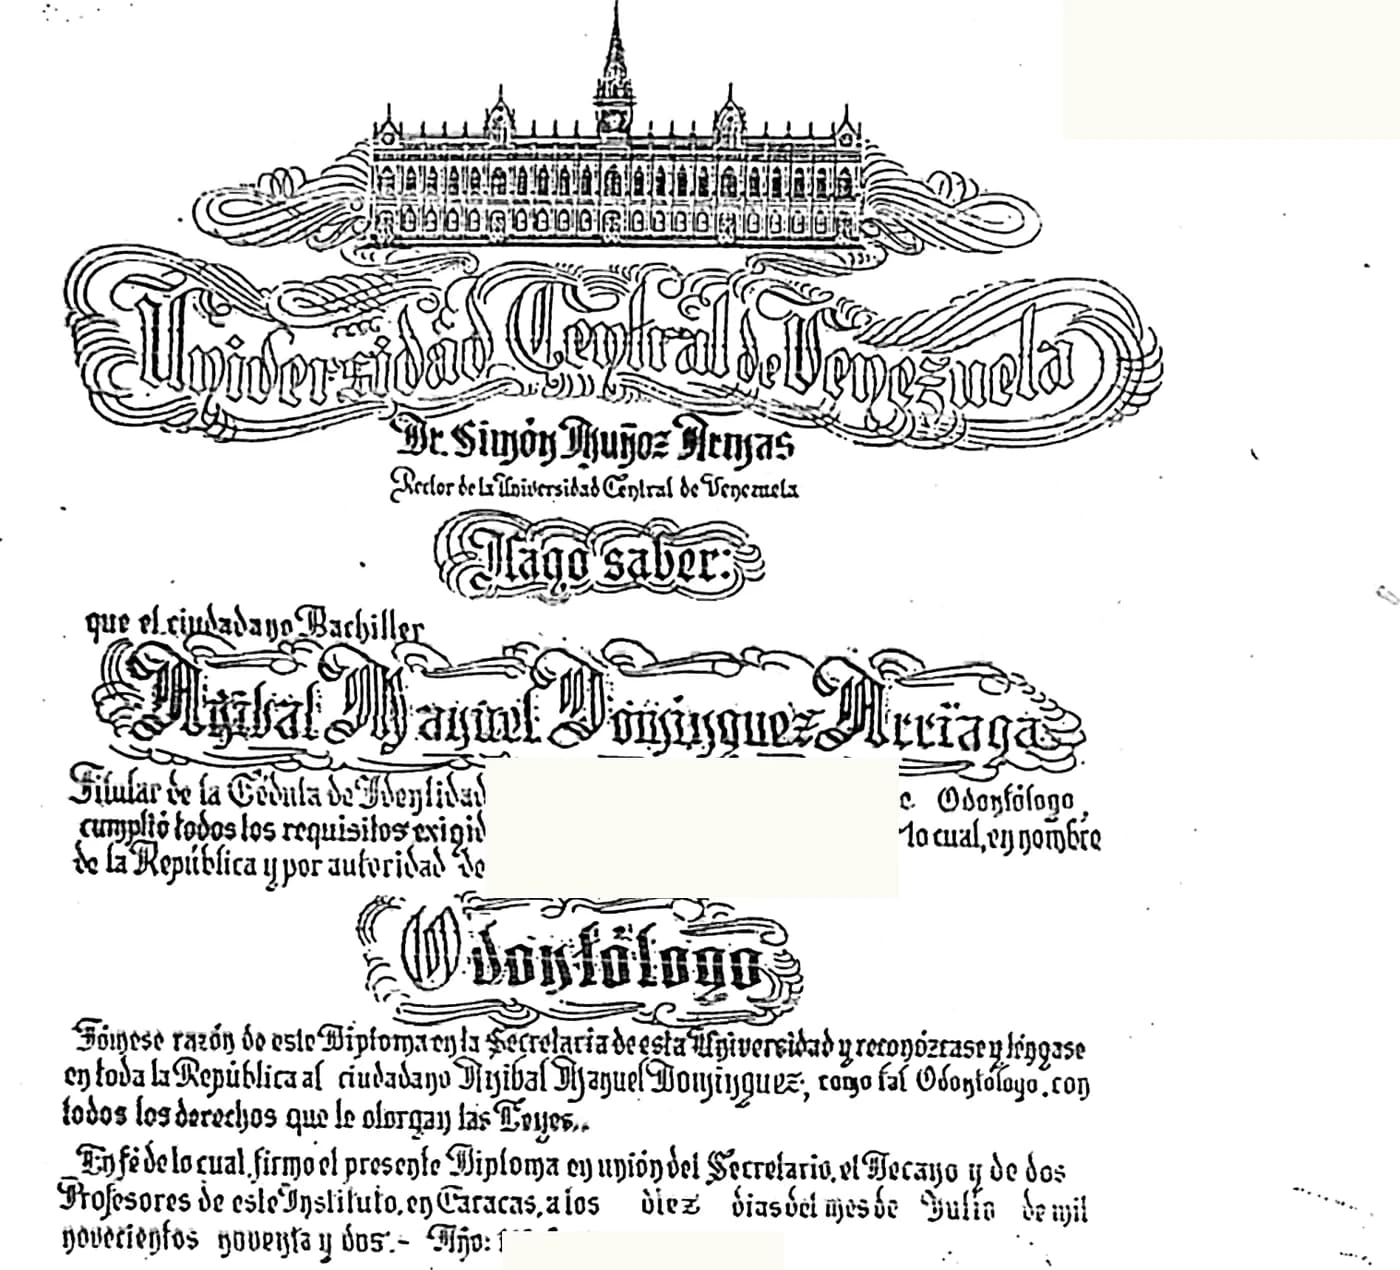 Universidad Central de Venezuela
Dr. Simón Muñoz Armas
Rector de la Universidad Central de Venezuela
Hago saber:
que el ciudadano Bachiller
Aníbal Manuel Domínguez Arriaga
Titular de la Cédula de Identidad Odontólogo,
cumplió todos los requisitos lo cual, en nombre
de la República y por autoridad de
Odontólogo
Tómese razón de este Diploma en la Secretaría de esta Universidad y reconózcase y téngase
en toda la República al ciudadano Aníbal Manuel Domínguez, como tal Odontólogo, con
todos los derechos que le otorgan las Leyes.
En fé de lo cual, firmo el presente Diploma en unión del Secretario, el Decano y de dos
Profesores de este Instituto, en Caracas, a los diez días del mes de Julio de mil
novecientos noventa y dos.- Año: